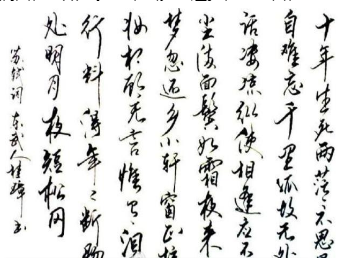 十年生死两茫々不思
自难忘千里孤坟无处
话凄凉纵使相逢应不
尘满面鬓如霜夜来
梦忽还乡小轩窗正梳
妆相顾无言惟有泪
行料得年々断肠
处明月夜短松冈
苏轼词 东武人